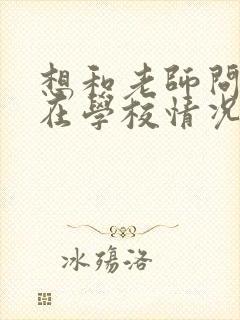 想和老師問
在學校情況
冰殤洛